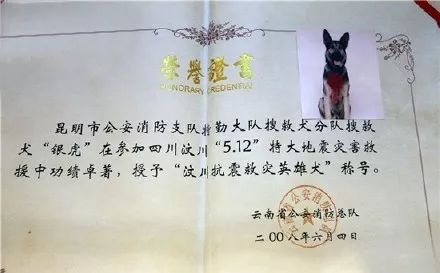 榮譽證書
HONORARY CREDENTIAL
昆明市公安消防支队特勤大队搜救犬分队搜救
犬“银虎”在参加四川汶川“5.12”特大地震灾害救
援中功绩卓著，授予“汶川抗震救灾英雄犬”称号。
云南省公安消防总队
二00八年六月四日